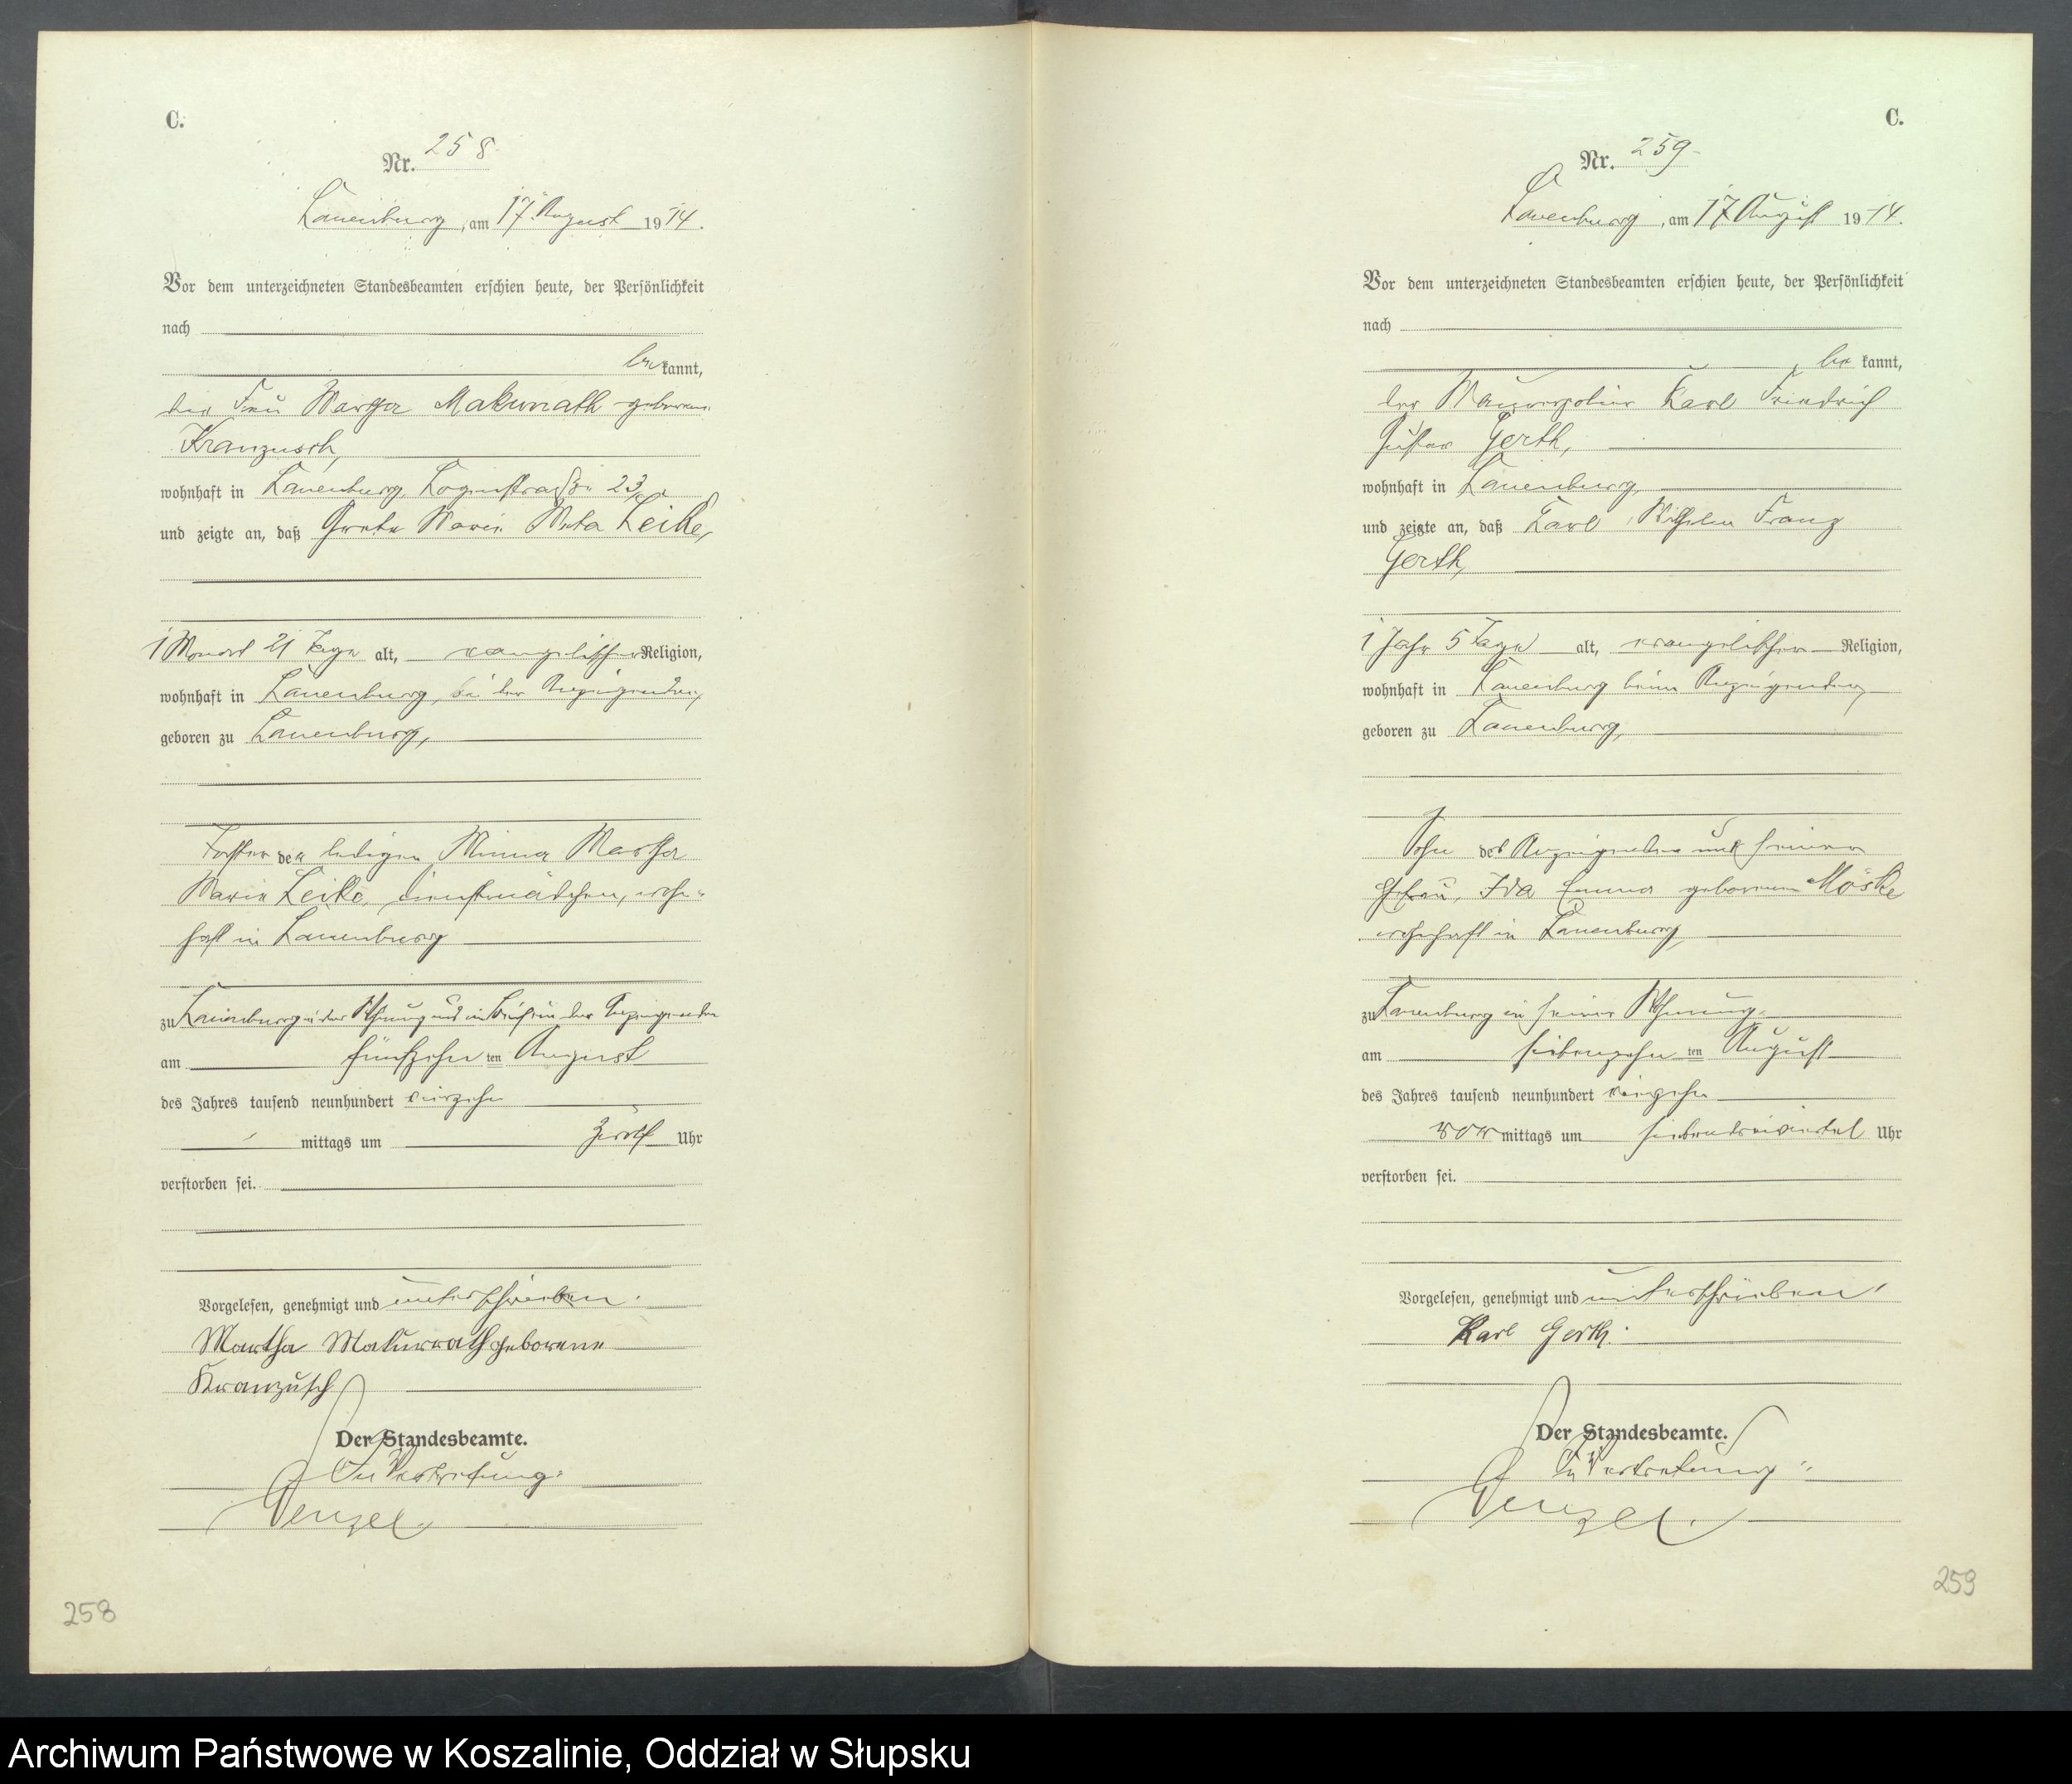 C.
Nr. 258
Lauenburg, am 17 August 1914.
Vor dem unterzeichneten Standesbeamten erschien heute, der Persönlichkeit
nach
be kannt,
die Frau Martha Makurrath geborene
Kranzusch,
wohnhaft in Lauenburg, Logenstraße 23,
und zeigte an, daß Grete Marie Meta Leike,
1 Monat 21 Tage alt, evangelischer Religion,
wohnhaft in Lauenburg, bei der Anzeigenden,
geboren zu Lauenburg,
Tochter der ledigen Minna Martha
Marie Leike, Dienstmädchen, wohn-
haft in Lauenburg
zu Lauenburg in der Wohnung und im Beisein der Anzeigenden
am fünfzehn ten August
des Jahres tausend neunhundert vierzehn
mittags um zwölf Uhr
verstorben sei.
Vorgelesen, genehmigt und unterschrieben.
Martha Makurrath geborene
Kranzusch
Der Standesbeamte.
In Vertretung:
Wenzel
258
C.
Nr. 259
Lauenburg, am 17 August 1914.
Vor dem unterzeichneten Standesbeamten erschien heute, der Persönlichkeit
nach
be kannt,
der Maurerpolier Karl Friedrich
Gustav Gerth,
wohnhaft in Lauenburg,
und zeigte an, daß Karl Wilhelm Franz
Gerth,
1 Jahr 5 Tage alt, evangelischer Religion,
wohnhaft in Lauenburg beim Anzeigenden,
geboren zu Lauenburg,
Sohn des Anzeigenden und seiner
Ehefrau, Ida Emma geborenen Möske
wohnhaft in Lauenburg,
zu Lauenburg in seiner Wohnung
am siebenzehn ten August
des Jahres tausend neunhundert vierzehn
vor mittags um siebendreiviertel Uhr
verstorben sei.
Vorgelesen, genehmigt und unterschrieben
Karl Gerth.
Der Standesbeamte.
In Vertretung:
Wenzel.
259
Archiwum Państwowe w Koszalinie, Oddział w Słupsku